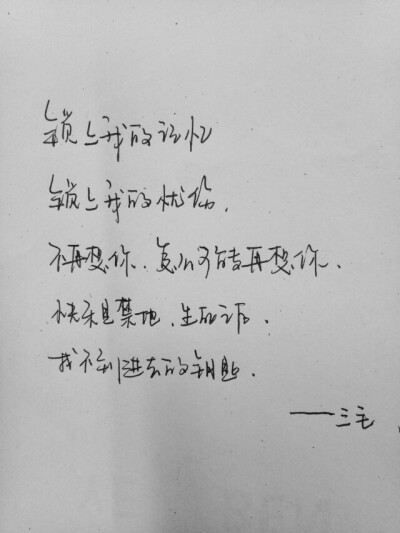 锁上我的记忆
锁上我的忧伤.
不再想你.怎么可能再想你.
快乐是禁地.生死之后.
找不到进去的钥匙.
——三毛